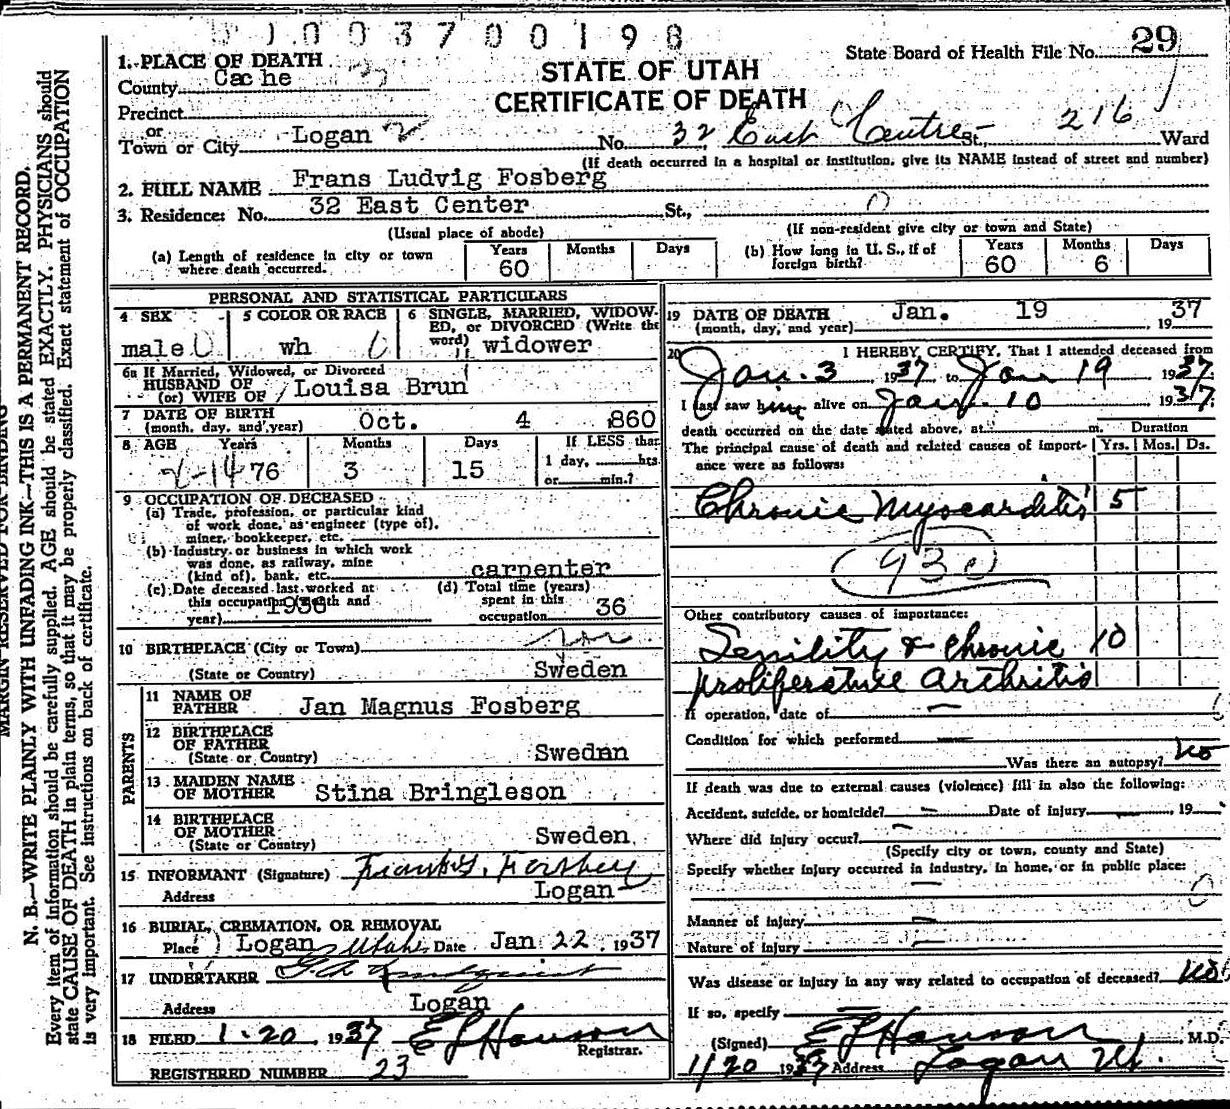 1003700198
State Board of Health File No. 29
1. PLACE OF DEATH
County Cache
STATE OF UTAH
CERTIFICATE OF DEATH
Precinct
or
Town or City Logan 2 No. 32 East Centre St., 216 Ward
(If death occurred in a hospital or institution, give its NAME instead of street and number)
2. FULL NAME Frans Ludvig Fosberg
3. Residence: No. 32 East Center St., 0
(Usual place of abode) (If non-resident give city or town and State)
(a) Length of residence in city or town where death occurred. Years 60 Months Days
(b) How long in U. S., if of foreign birth? Years 60 Months 6 Days
PERSONAL AND STATISTICAL PARTICULARS
4 SEX male
5 COLOR OR RACE wh
6 SINGLE, MARRIED, WIDOWED, or DIVORCED (Write the word) widower
6a If Married, Widowed, or Divorced
HUSBAND OF
(or) WIFE OF Louisa Brun
7 DATE OF BIRTH
(month, day, and year) Oct. 4 860
8 AGE Years 76 Months 3 Days 15
If LESS than
1 day, hrs
or min.?
9 OCCUPATION OF DECEASED
(a) Trade, profession, or particular kind
of work done, as engineer (type of),
miner, bookkeeper, etc.
(b) Industry or business in which work
was done, as railway, mine
(kind of), bank, etc. carpenter
(c) Date deceased last worked at
this occupation (month and
year) 1936
(d) Total time (years)
spent in this
occupation 36
10 BIRTHPLACE (City or Town)
(State or Country) Sweden
PARENTS
11 NAME OF
FATHER Jan Magnus Fosberg
12 BIRTHPLACE
OF FATHER
(State or Country) Swednn
13 MAIDEN NAME
OF MOTHER Stina Bringleson
14 BIRTHPLACE
OF MOTHER
(State or Country) Sweden
15 INFORMANT (Signature)
Address Logan
16 BURIAL, CREMATION, OR REMOVAL
Place Logan Utah Date Jan 22, 1937
17 UNDERTAKER
Address Logan
18 FILED 1-20, 1937 E L Hanson
Registrar.
REGISTERED NUMBER 23
19 DATE OF DEATH
(month, day, and year) Jan. 19 19 37
20 I HEREBY CERTIFY, That I attended deceased from
Jan. 3 1937 to Jan 19 1937
I last saw him alive on Jan. 10 1937
death occurred on the date stated above, at m. Duration
The principal cause of death and related causes of importance were as follows: Yrs. Mos. Ds.
Chronic Myocarditis 5
93c
Other contributory causes of importance:
Senility & Chronic 10
proliferature arthritis
If operation, date of
Condition for which performed
Was there an autopsy? no
If death was due to external causes (violence) fill in also the following:
Accident, suicide, or homicide? Date of injury , 19
Where did injury occur?
(Specify city or town, county and State)
Specify whether injury occurred in industry, in home, or in public place:
Manner of injury
Nature of injury
Was disease or injury in any way related to occupation of deceased? no
If so, specify
(Signed) E L Hanson, M.D.
1/20 1937 Address Logan Ut.
MARGIN RESERVED FOR BINDING
N. B.—WRITE PLAINLY WITH UNFADING INK—THIS IS A PERMANENT RECORD.
Every item of information should be carefully supplied. AGE should be stated EXACTLY. PHYSICIANS should
state CAUSE OF DEATH in plain terms, so that it may be properly classified. Exact statement of OCCUPATION
is very important. See instructions on back of certificate.